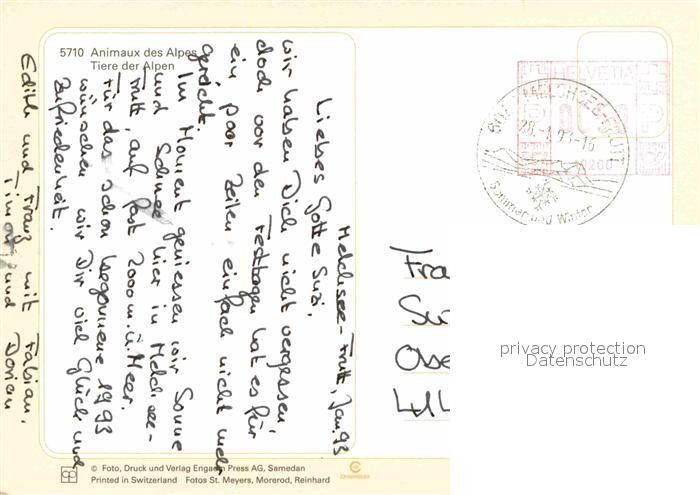 5710 Animaux des Alpes
Tiere der Alpen
Melchsee-Frutt, Jan. 93
Liebes Gotte Susi,
wir haben Dich nicht vergessen,
doch vor den Festtagen hat es für
ein paar Zeilen einfach nicht mehr
gereicht.
Im Moment geniessen wir Sonne
und Schnee hier in Melchsee-
Frutt, auf fast 2000 m.ü.Meer.
Für das schon begonnene 1993
wünschen wir Dir viel Glück und
Zufriedenheit.
Edith und Franz mit Fabian,
und Dorian
HELVETIA
MELCHSEE-FRUTT
Sommer und Winter
Fra
privacy protection
Datenschutz
© Foto, Druck und Verlag Engadin Press AG, Samedan
Printed in Switzerland Fotos St. Meyers, Morerod, Reinhard